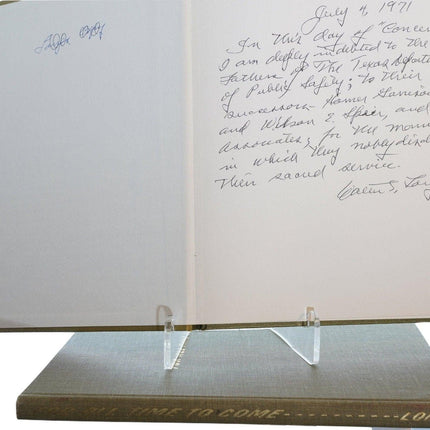 July 4, 1971
In this day of "Concer
I am deeply indebted to the
Fathers of The Texas Departm
of Public Safety; to their
successors Homer Garrison
and Wilson E. Speir, and
associates, for the mann
in which they nobly disc
their sacred service.
TIME TO COME